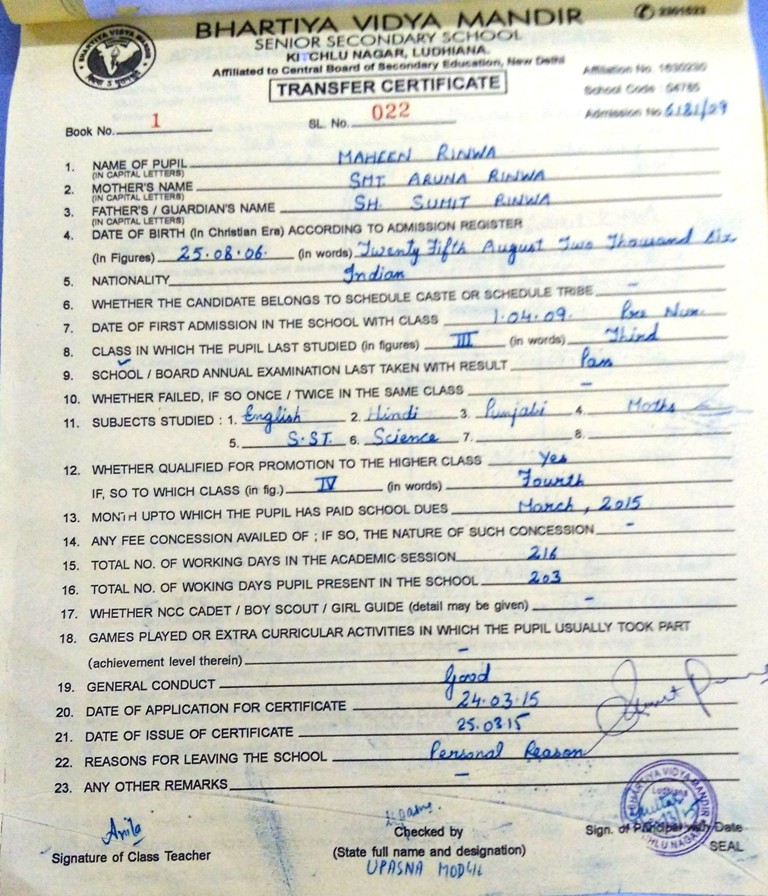 BHARTIYA VIDYA MANDIR
SENIOR SECONDARY SCHOOL
KITCHLU NAGAR, LUDHIANA.
Affiliated to Central Board of Secondary Education, New Delhi
Affiliation No.
School Code : 04785
TRANSFER CERTIFICATE
Admission No 6181/29
Book No. 1 SL. No. 022
1. NAME OF PUPIL MAHEEN RINWA
(IN CAPITAL LETTERS)
2. MOTHER'S NAME SMT. ARUNA RINWA
(IN CAPITAL LETTERS)
3. FATHER'S / GUARDIAN'S NAME SH. SUMIT RINWA
(IN CAPITAL LETTERS)
4. DATE OF BIRTH (In Christian Era) ACCORDING TO ADMISSION REGISTER
(In Figures) 25.08.06. (in words) Twenty Fifth August Two Thousand Six
5. NATIONALITY Indian
6. WHETHER THE CANDIDATE BELONGS TO SCHEDULE CASTE OR SCHEDULE TRIBE -
7. DATE OF FIRST ADMISSION IN THE SCHOOL WITH CLASS 1.04.09. Pre Nur.
8. CLASS IN WHICH THE PUPIL LAST STUDIED (in figures) III (in words) Third
9. SCHOOL / BOARD ANNUAL EXAMINATION LAST TAKEN WITH RESULT Pass
10. WHETHER FAILED, IF SO ONCE / TWICE IN THE SAME CLASS -
11. SUBJECTS STUDIED : 1. English 2. Hindi 3. Punjabi 4. Maths
5. S.ST. 6. Science 7. 8.
12. WHETHER QUALIFIED FOR PROMOTION TO THE HIGHER CLASS Yes
IF, SO TO WHICH CLASS (in fig.) IV (in words) Fourth
13. MONTH UPTO WHICH THE PUPIL HAS PAID SCHOOL DUES March, 2015
14. ANY FEE CONCESSION AVAILED OF ; IF SO, THE NATURE OF SUCH CONCESSION -
15. TOTAL NO. OF WORKING DAYS IN THE ACADEMIC SESSION 216
16. TOTAL NO. OF WOKING DAYS PUPIL PRESENT IN THE SCHOOL 203
17. WHETHER NCC CADET / BOY SCOUT / GIRL GUIDE (detail may be given) -
18. GAMES PLAYED OR EXTRA CURRICULAR ACTIVITIES IN WHICH THE PUPIL USUALLY TOOK PART
(achievement level therein) -
19. GENERAL CONDUCT Good
20. DATE OF APPLICATION FOR CERTIFICATE 24.03.15
21. DATE OF ISSUE OF CERTIFICATE 25.03.15
22. REASONS FOR LEAVING THE SCHOOL Personal Reason
23. ANY OTHER REMARKS -
Anita
Signature of Class Teacher
Checked by
(State full name and designation)
UPASNA MODGIL
Sign. of Principal with Date
SEAL
BHARTIYA VIDYA MANDIR
Ludhiana
KITCHLU NAGAR